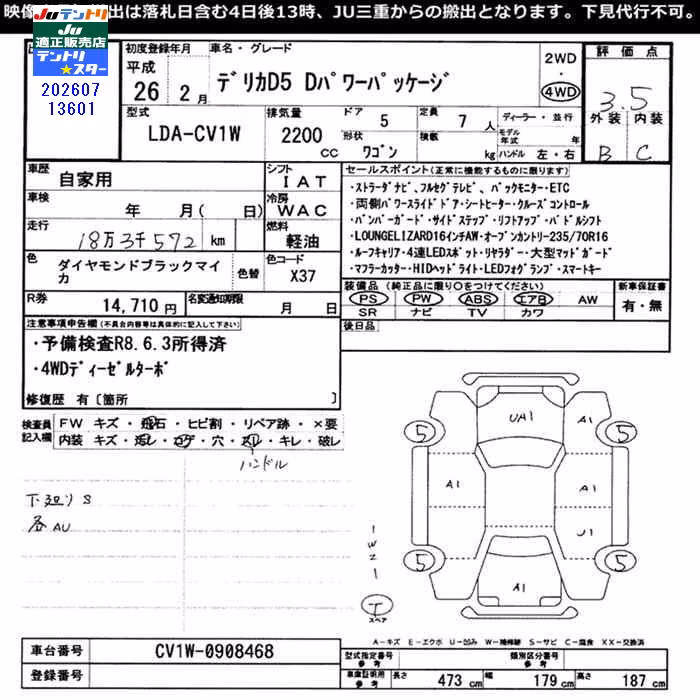 映像 出は落札日含む4日後13時、JU三重からの搬出となります。下見代行不可。
JUテントリ
JU
適正販売店
テントリ★スター
202607
13601
初度登録年月
平成
26 2月
車名・グレード
デリカD5 Dパワーパッケージ
2WD
・
4WD
評価点
3.5
外装 内装
B C
型式
LDA-CV1W
排気量
2200
CC
ドア
5
形状
ワゴン
定員
7人
積載
kg
ディーラー・並行
モデル
年式 年
ハンドル 左・右
車歴
自家用
シフト
IAT
車検
年 月( 日)
冷房
WAC
走行
18万3千572 km
燃料
軽油
色
ダイヤモンドブラックマイカ
色替
色コード
X37
R券
14,710円
名変通知期限
月 日
セールスポイント(正常に機能するものに限ります)
・ストラーダナビ、フルセグテレビ、バックモニター・ETC
・両側パワースライドドア・シートヒーター・クルーズコントロール
・バンパーガード・サイドステップ・リフトアップ・パドルシフト
・LOUNGELIZARD16インチAW・オープンカントリー235/70R16
・ルーフキャリア・4連LEDスポット・リヤラダー・大型マッドガード
・マフラーカッター・HIDヘッドライト・LEDフォグランプ・スマートキー
装備品(純正品に限り○をつけてください)
PS PW ABS エアB AW
SR ナビ TV カワ
新車保証書
有・無
後日品
注意事項申告欄(不具合内容等は具体的に記入して下さい)
・予備検査R8.6.3所得済
・4WDディーゼルターボ
修復歴 有〔箇所 〕
検査員
記入欄
FW キズ・飛石・ヒビ割・リペア跡・×要
内装 キズ・汚レ・コゲ・穴・スレ・キレ・破レ
ハンドル
下廻りS
各AU
UA1
A1
A1
A1
U1
A1
5
5
5
5
1W21
T
スペア
A-キズ E-エクボ U-凹み W-補修跡 S-サビ C-腐食 XX-交換済
車台番号
CV1W-0908468
登録番号
型式指定番号
参考
類別区分番号
参考
車庫証明用
参考
長さ 473 cm 幅 179 cm 高さ 187 cm